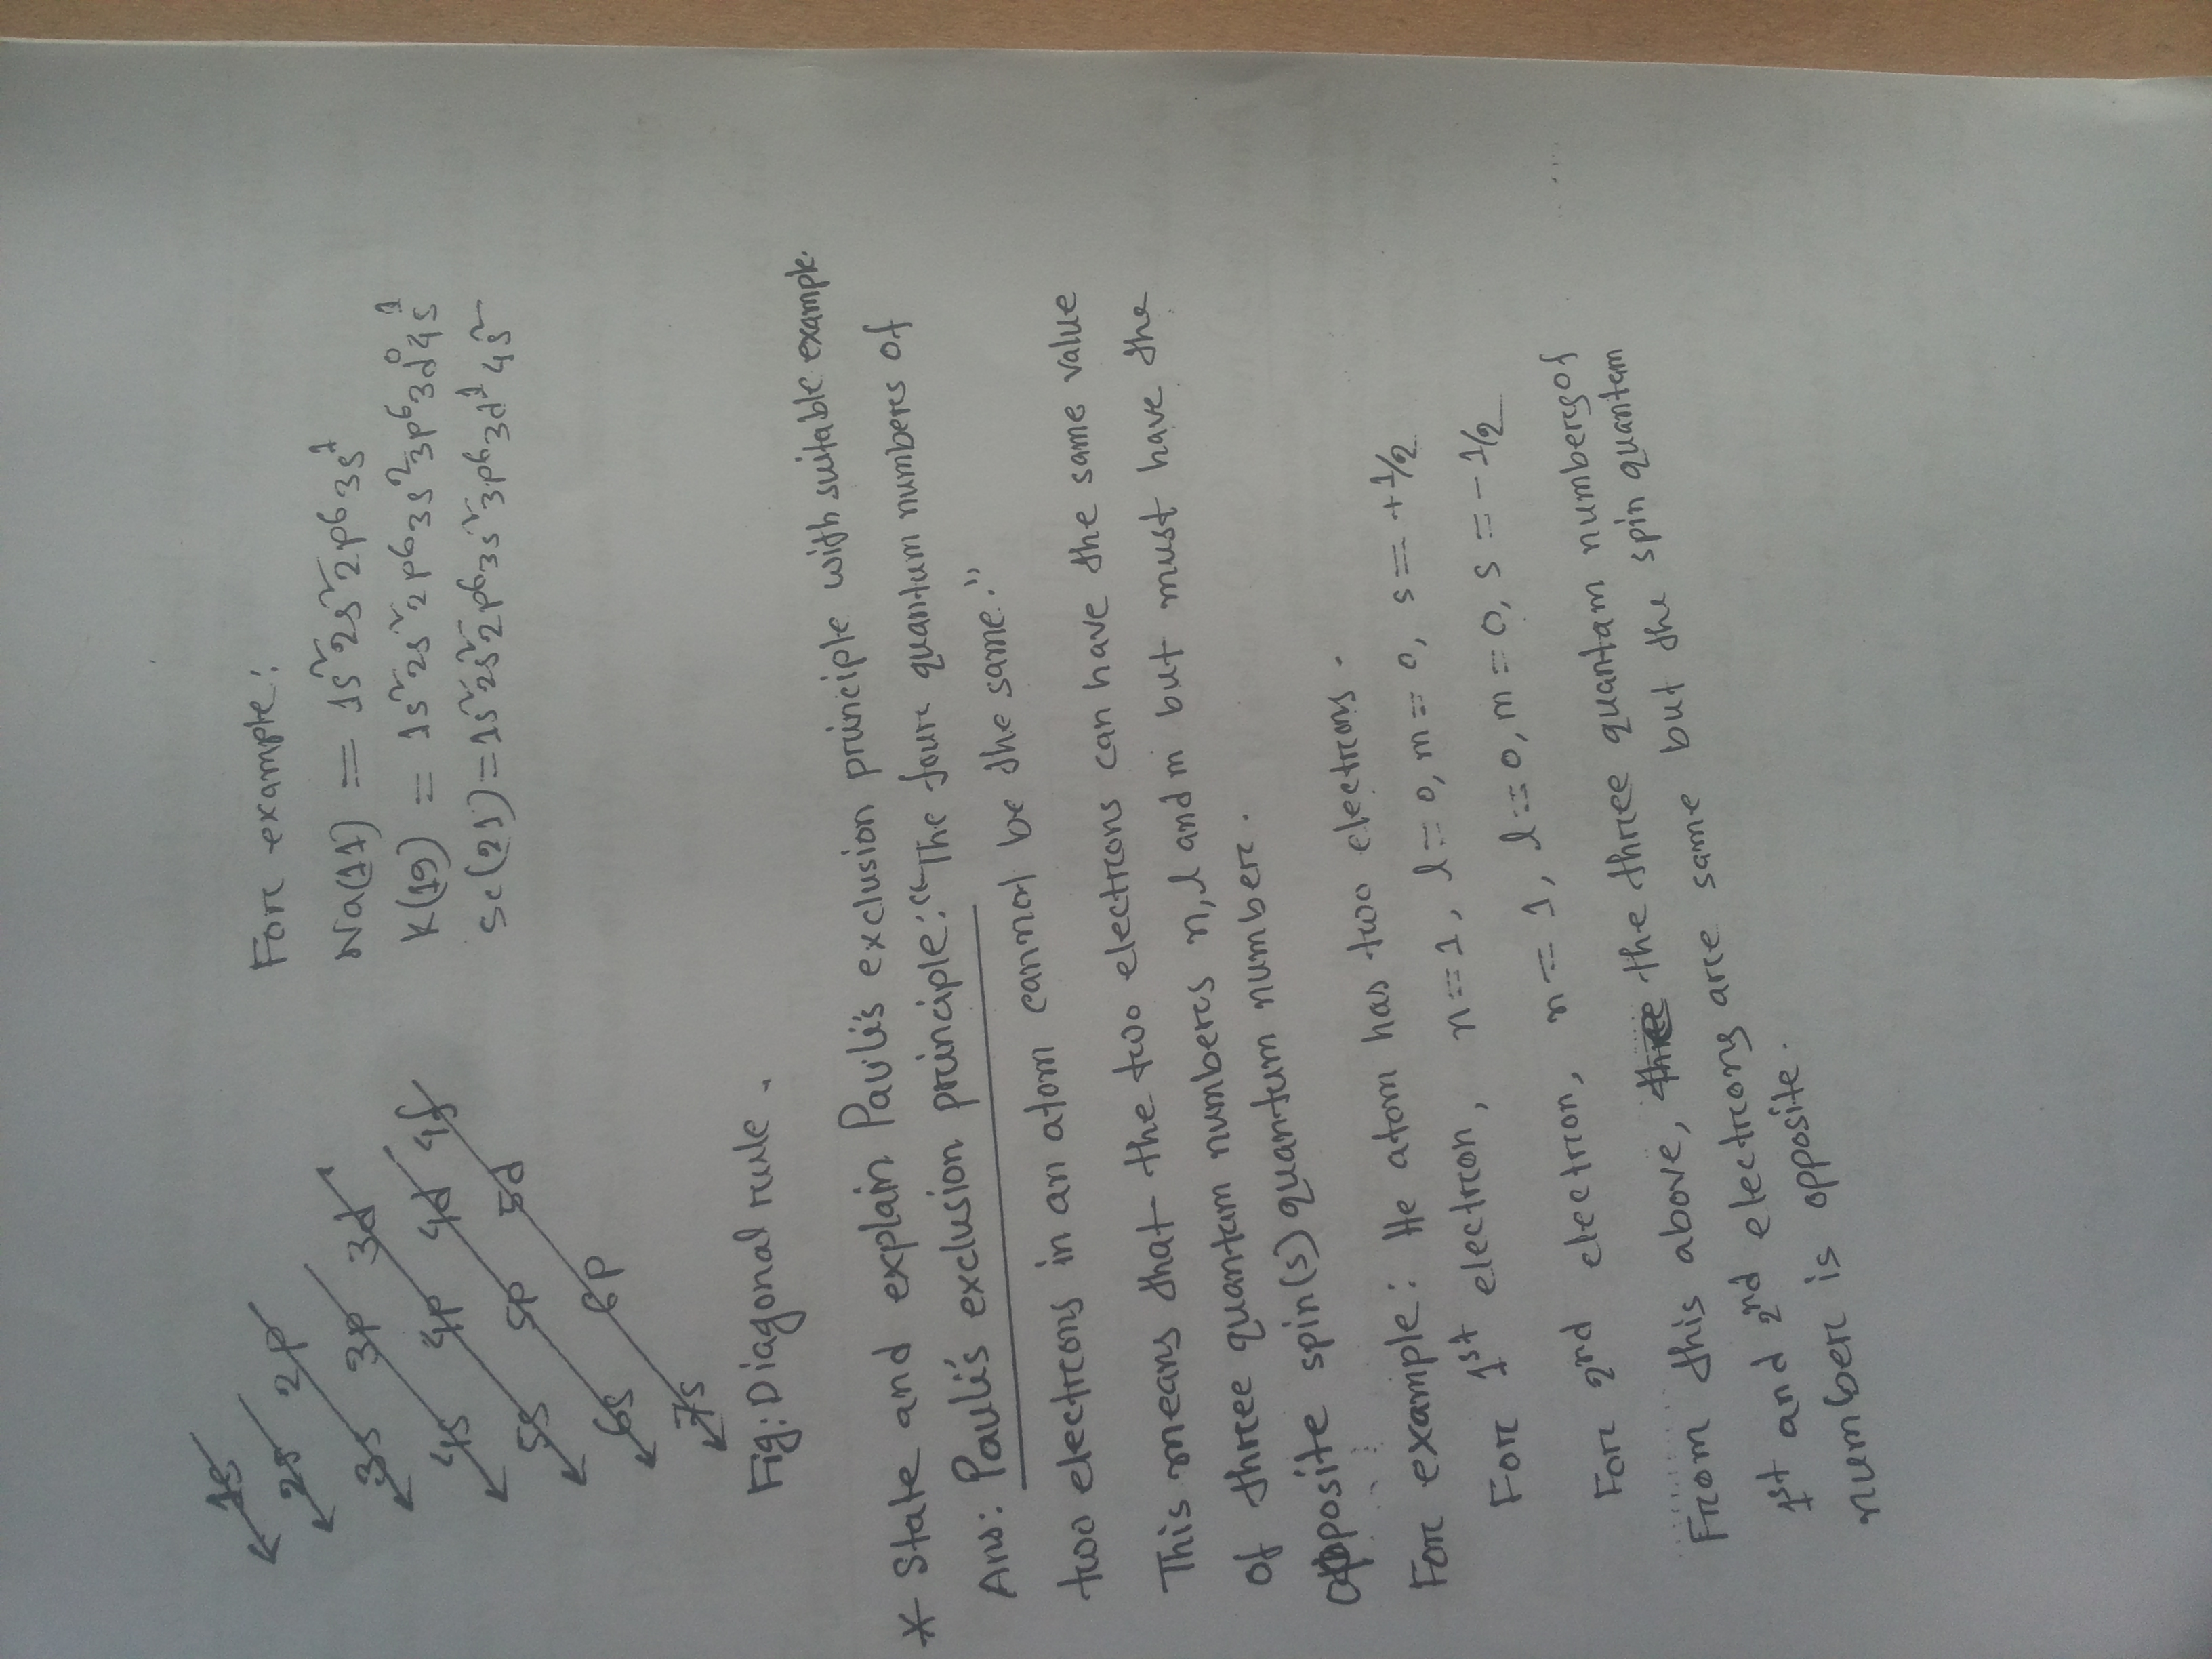 1s
2s 2p
3s 3p 3d
4s 4p 4d 4f
5s 5p 5d
6s 6p
7s
Fig: Diagonal rule.
For example:
Na(11) = 1s²2s²2p⁶3s¹
K(19) = 1s²2s²2p⁶3s²3p⁶3d⁰4s¹
Sc(21)=1s²2s²2p⁶3s²3p⁶3d¹4s²
* State and explain Pauli's exclusion principle with suitable example.
Ans: Pauli's exclusion principle: "The four quantum numbers of
two electrons in an atom cannot be the same."
This means that the two electrons can have the same value
of three quantam numbers n, l and m but must have the
opposite spin(s) quantum number.
For example: He atom has two electrons.
For 1st electron, n=1, l=0, m=0, s=+1/2
For 2nd electron, n=1, l=0, m=0, s=-1/2
From this above, the three quantam numbers of
1st and 2nd electrons are same but the spin quantam
number is opposite.